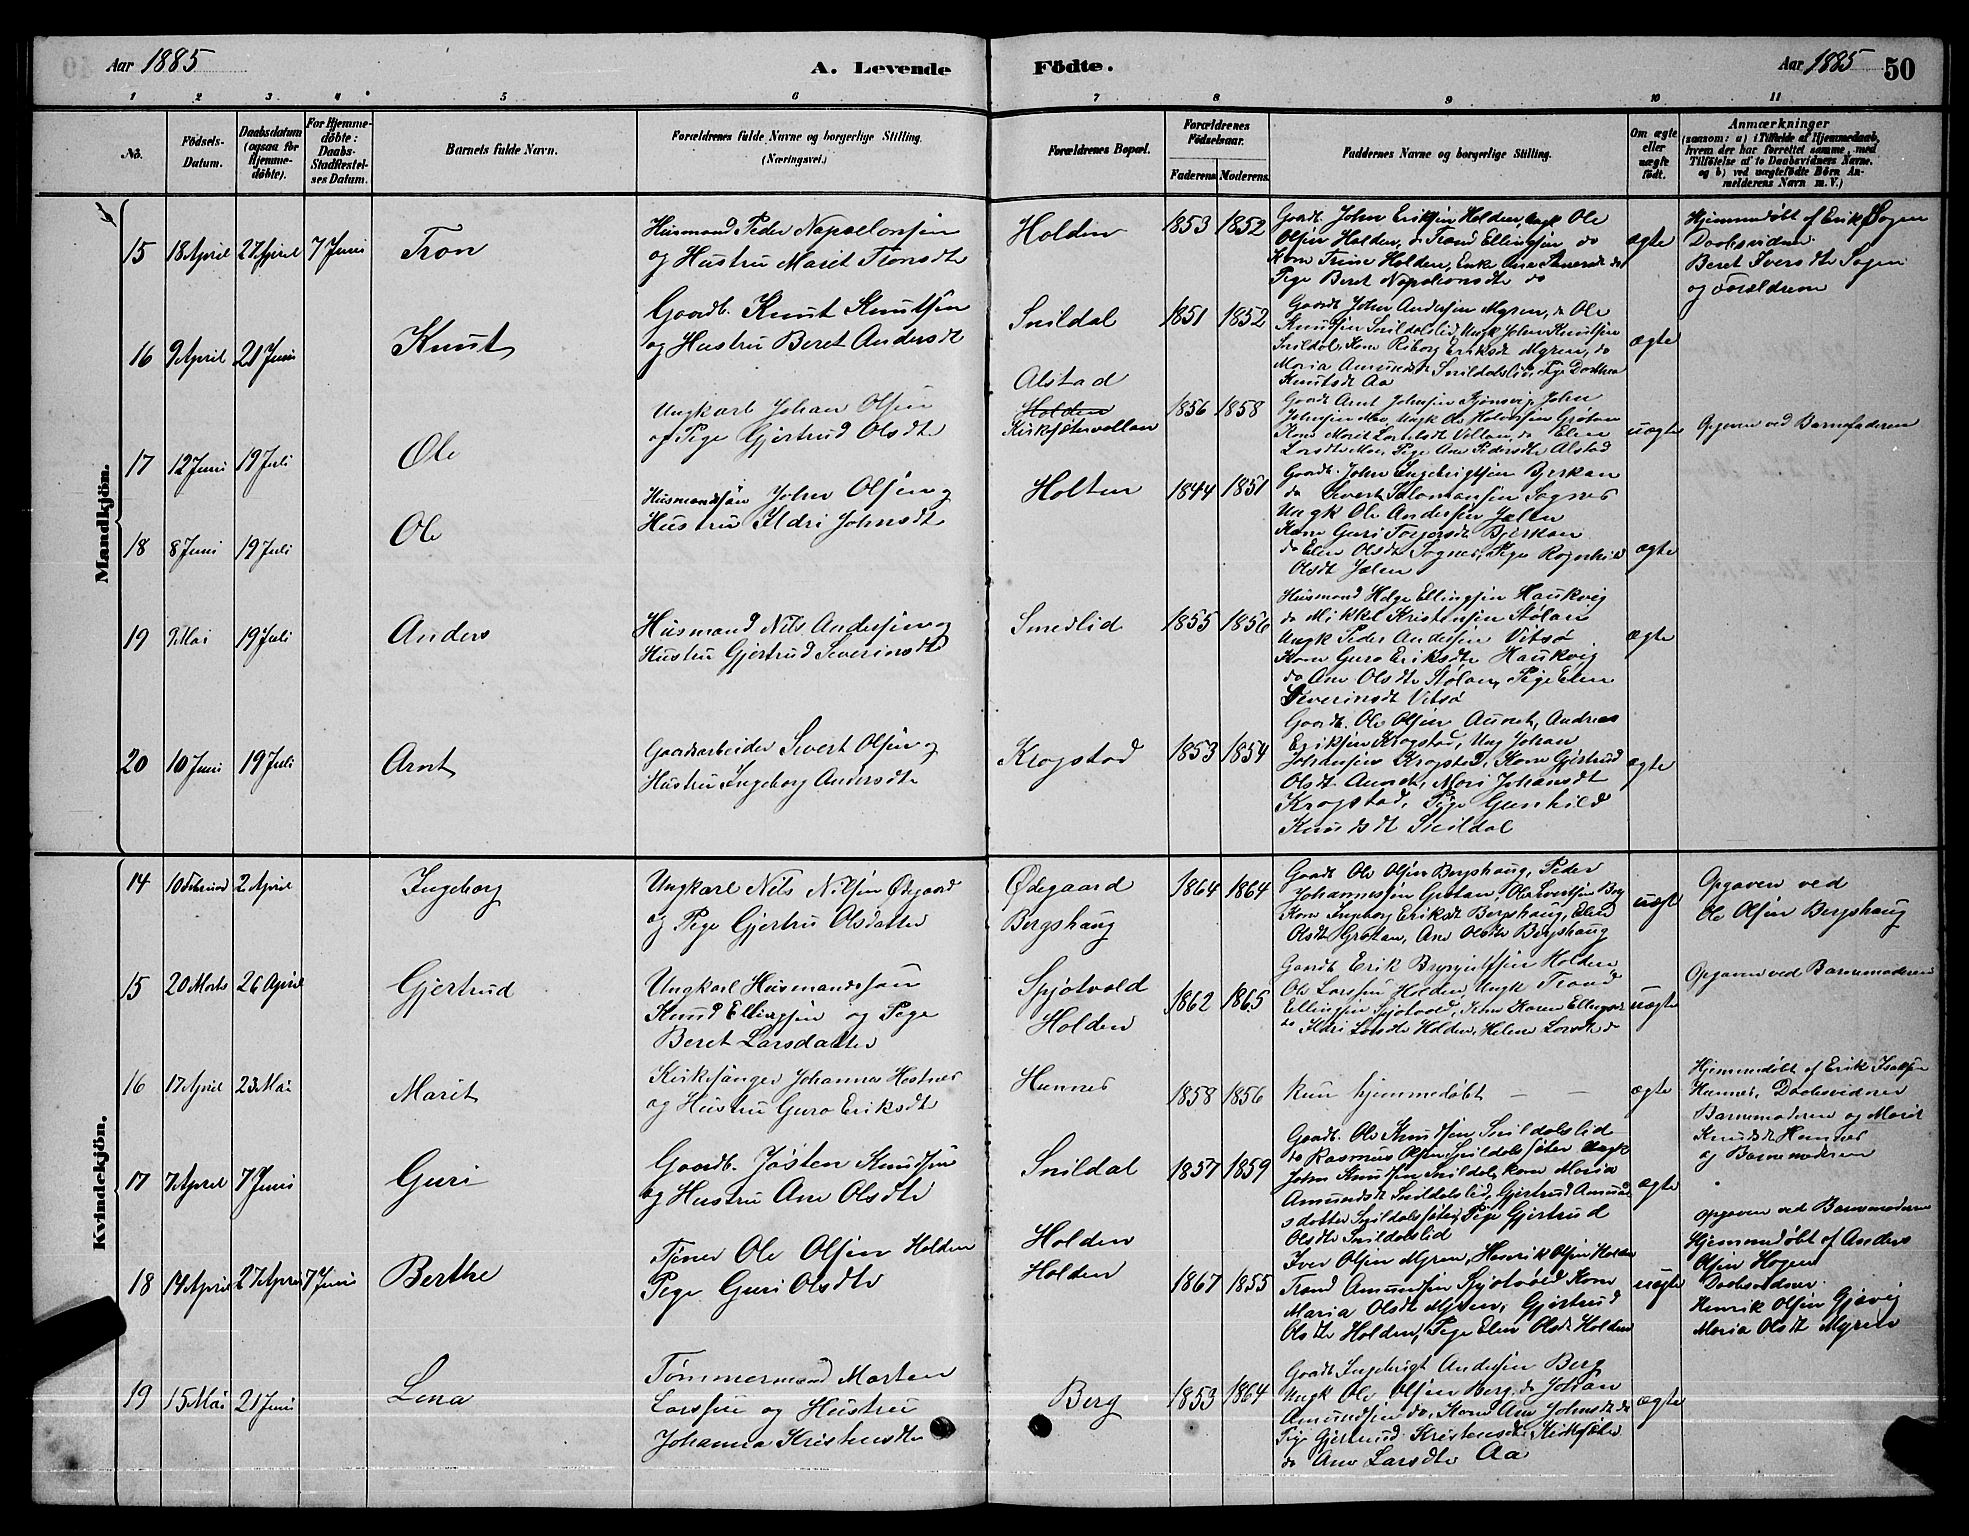 Aar 1885
A. Levende
Födte.
Aar 1885
50
1 2 3 4 5 6 7 8 9 10 11
No.
Födsels-Datum.
Daabsdatum (ogsaa for Hjemme-döbte).
For Hjemme-döbte: Daabs-Stadfæstel-ses Datum.
Barnets fulde Navn.
Forældrenes fulde Navne og borgerlige Stilling.
(Næringsvei.)
Forældrenes Bopæl.
Forældrenes Födselsaar.
Faderens Moderens
Faddernes Navne og borgerlige Stilling.
Om ægte eller uægte födt.
Anmærkninger
(saasom: a) i Tilfælde af Hjemmedaab,
hvem der har forrettet samme, med
Tilföielse af to Daabsvidners Navne.
og b) ved uægtefödte Börn An-
melderens Navn m. V.)
Mandkjön.
15 18 April 27 April 7 Juni Tron
Husmand Peder Napoelonsen
og Hustru Marit Tronsdtr
Holden 1853 1852
Gaardb. John Eriksen Holden, Ungk Ole
Olsen Holden, do Trond Ellingsen do
Kone Trine Holden, Enke Ane
Pige Beret Napoleonsdtr do
ægte
Hjemmedöbt af Erik Sogen
Daabsvidner.
Beret Iversdtr Sogen
og Forældrene
16 9 April 21 Juni Knut
Gaardb. Knut Knutsen
og Hustru Beret Andersdt
Snildal 1851 1852
Gaardb. John Andersen Myren, do Ole
Knutsen Snildalslid, Ungk Johan Knutsen
Snildal, Kone Riborg Eriksdt Myren, do
Maria Amundsdt Snildalslid, Pige Dorthea
Knutsdt Aa
ægte
17 12 Juni 19 Juli Ole
Ungkarl Johan Olsen
og Pige Gjertrud Olsdtr
Alstad
Holden
Kirksætervollan
1856 1858
Gaardb Arnt Johnsen, John
Johnsen Moe, Ungk Ole Grötan
Kone Marit Larsdt Vollan, do Elen
Larsdtr Moe, Pige Ane Pedersdtr Alstad
uægte
Opgaven ved Barnefaderen
18 8 Juni 19 Juli Ole
Husmandssön John Olsen og
Hustru Ildri Johnsdtr
Holten 1844 1851
Gaardb. John Ingebrigtsen Bjerkan
do Sivert Salomonsen Sognes
Ungk Ole Andersen Jælen
Kone Guri Torgersdt Bjerkan
do Elen Olsdt Sognes, Pige Ragnhild
Olsdt Jælen
ægte
19 2 Mai 19 Juli Anders
Husmand Nils Andersen og
Hustru Gjertrud Severinsdtr
Smedlid 1855 1856
Husmand Helge Ellingsen Haukvig
do Mikkel Kristensen Stölan
Ungk Peder Andersen Vitsø
Kone Guro Eriksdtr Haukvig
do Ane Olsdtr Stölan, Pige Elen
Severinsdt Vitsø
ægte
20 10 Juni 19 Juli Arnt
Gaardarbeider Sivert Olsen og
Hustru Ingeborg Andersdtr
Krogstad 1853 1854
Gaardb. Ole Olsen Aunet, Andreas
Eriksen Krogstad, Ung Johan
Johansen Krogstad, Kone Gjertrud
Olsdt Aunet, Mari Johansdt
Krogstad, Pige Gunhild
Knudsdt Snildal
ægte
Kvindekjön.
14 10 Februar 2 April Ingeborg
Ungkarl Nils Nilsen Ødegaard
og Pige Gjertru Olsdatter
Ødegaard
Bergshaug
1864 1864
Gaardb Ole Olsen Bergshaug, Peder
Johannessen Grötan, Ole Sivertsen Berg
Kone Ingeborg Eriksdt Bergshaug, Elen
Olsdt Grötan, Ane Olsdtr Bergshaug
uægte
Opgaven ved
Ole Olsen Bergshaug
15 20 Marts 26 April Gjertrud
Ungkarl Husmandssön
Knud Ellingsen og Pige
Beret Larsdatter
Spjötvold
Holden
1862 1865
Gaardb Erik Holden
Ole Larssen Holden, Ungk Trond
Ellingsen Spjötvold, Kone Karen Ellingsdt
do Kari Larsdtr Holden, Helen Larsdtr do
uægte
Opgaven ved Barnemoderen
16 17 April 23 Mai Marit
Kirkesanger Johannes Hestnes
og Hustru Guro Eriksdtr
Hennes 1858 1856
kun hjemmedöbt — —
ægte
Hjemmedöbt af Erik Isaksen
Hennes, Daabsvidner
Barnemoderen og Marit
Knudsdt Hennes
og Barnemoderen
17 7 April 7 Juni Guri
Gaardb. Jösten Knudsen
og Hustru Ane Olsdtr
Snildal 1857 1859
Gaardb. Ole Knudsen Snildalslid
do Rasmus Olsen Snildalssæter Ungk
John Knudsen Snildal, kone Maria
Amundsdt Snildalslid, Gjertrud Amund
sdatter Snildalssæter, Pige Gjertrud
Olsdtr Snildalslid
ægte
18 14 April 27 April 7 Juni Berthe
Tjener Ole Olsen Holden
Pige Guri Olsdtr
Holden
Holden
1867 1855
Iver Olsen Myren, Henrik Olsen Holden
Trond Amundsen Spjötvold Kone
Maria Olsdt Myren, Gjertrud
Olsdtr Holden, Pige Elen Olsdt Holden
uægte
opgaven ved Barnemoderen
Hjemmedöbt af Anders
Olsen Hogen
Daabsvidner.
Henrik Olsen Gjævig
Maria Olsdt Myren
19 15 Mai 21 Juni Lena
Tömmermand Morten
Larssen og Hustru
Johanna Kristensdtr
Berg 1853 1864
Gaardb Ingebrigt Andersen Berg
Ungk Ole Olsen Berg, do Johan
Amundsen do, Kone Ane Johnsdtr do
Pige Gjertrud Kristensdt Kirksæter
do Ane Larsdtr Aa
ægte